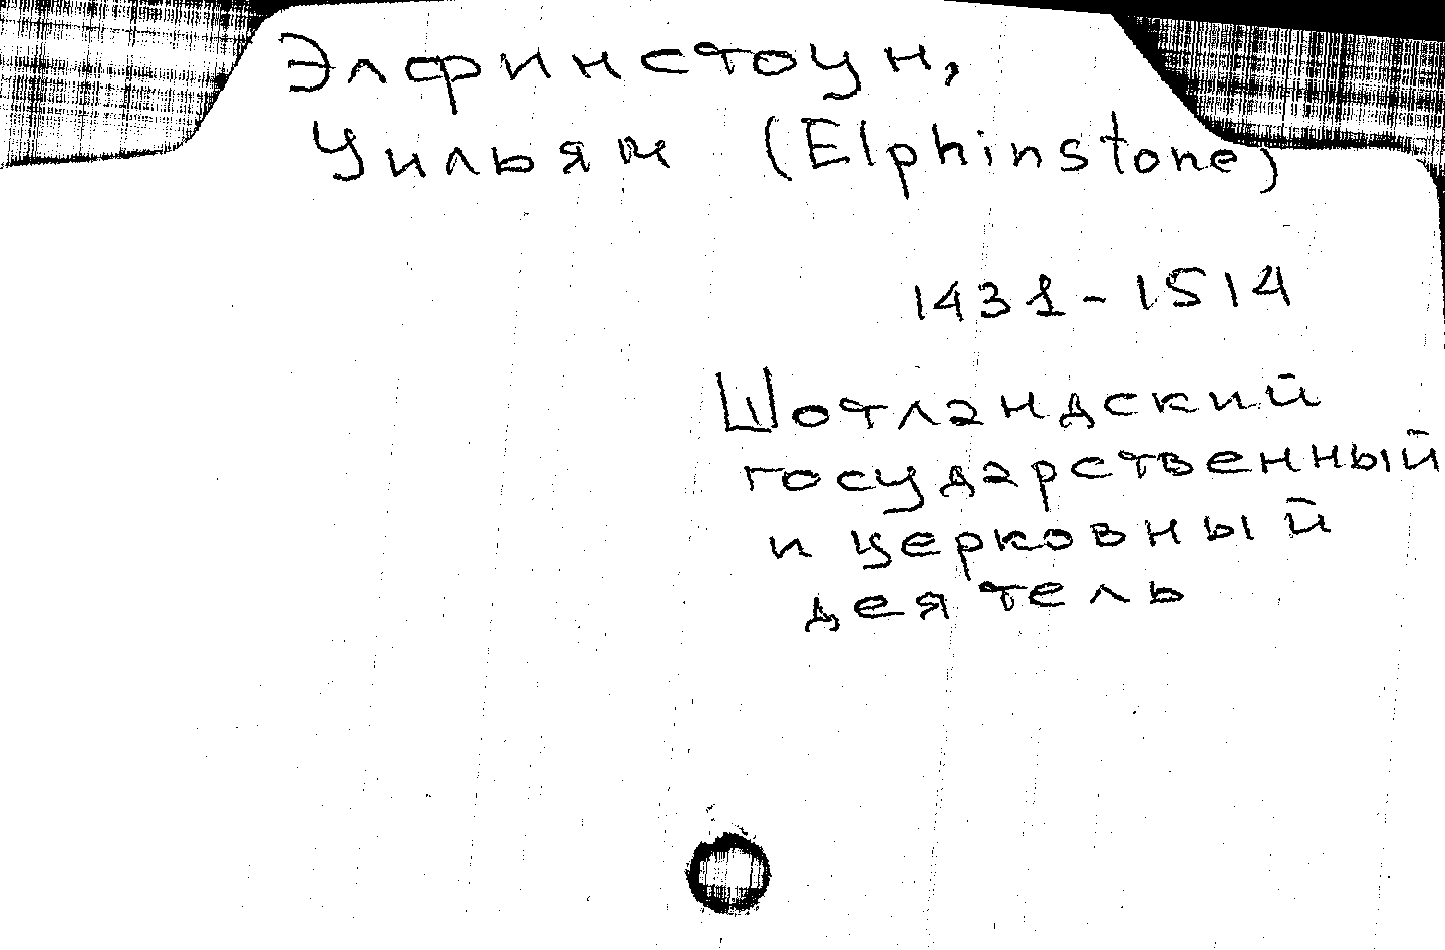 Элфинстоун,
Уильям (Elphinstone)
1431-1514
Шотландский
государственный
и церковный
деятель